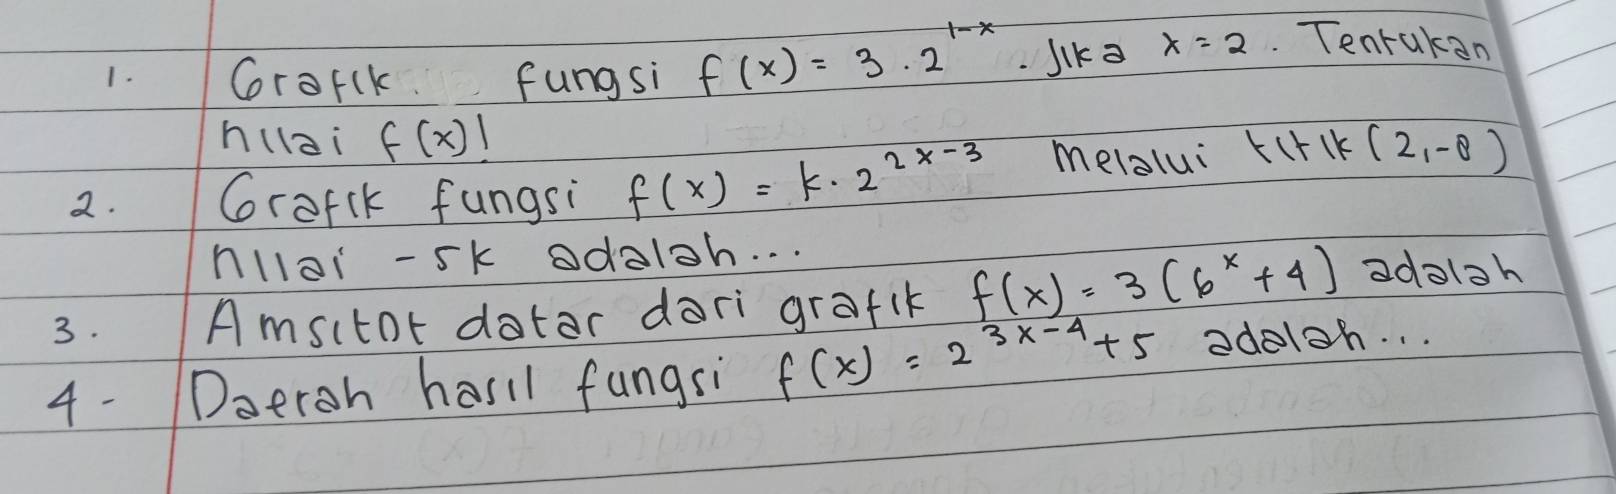 1. Grafik fungsi f(x) = 3 . 2^{1-x} . Jika x = 2 . Tentukan
nilai f(x)!
2. Grafik fungsi f(x) = k . 2^{2x-3} Melalui titik (2,-8)
nilai -5k adalah...
3. Amsitot datar dari grafik f(x) = 3 (6^x + 4) adalah
4- Daerah hasil fungsi f(x) = 2^{3x-4} + 5 adalah...